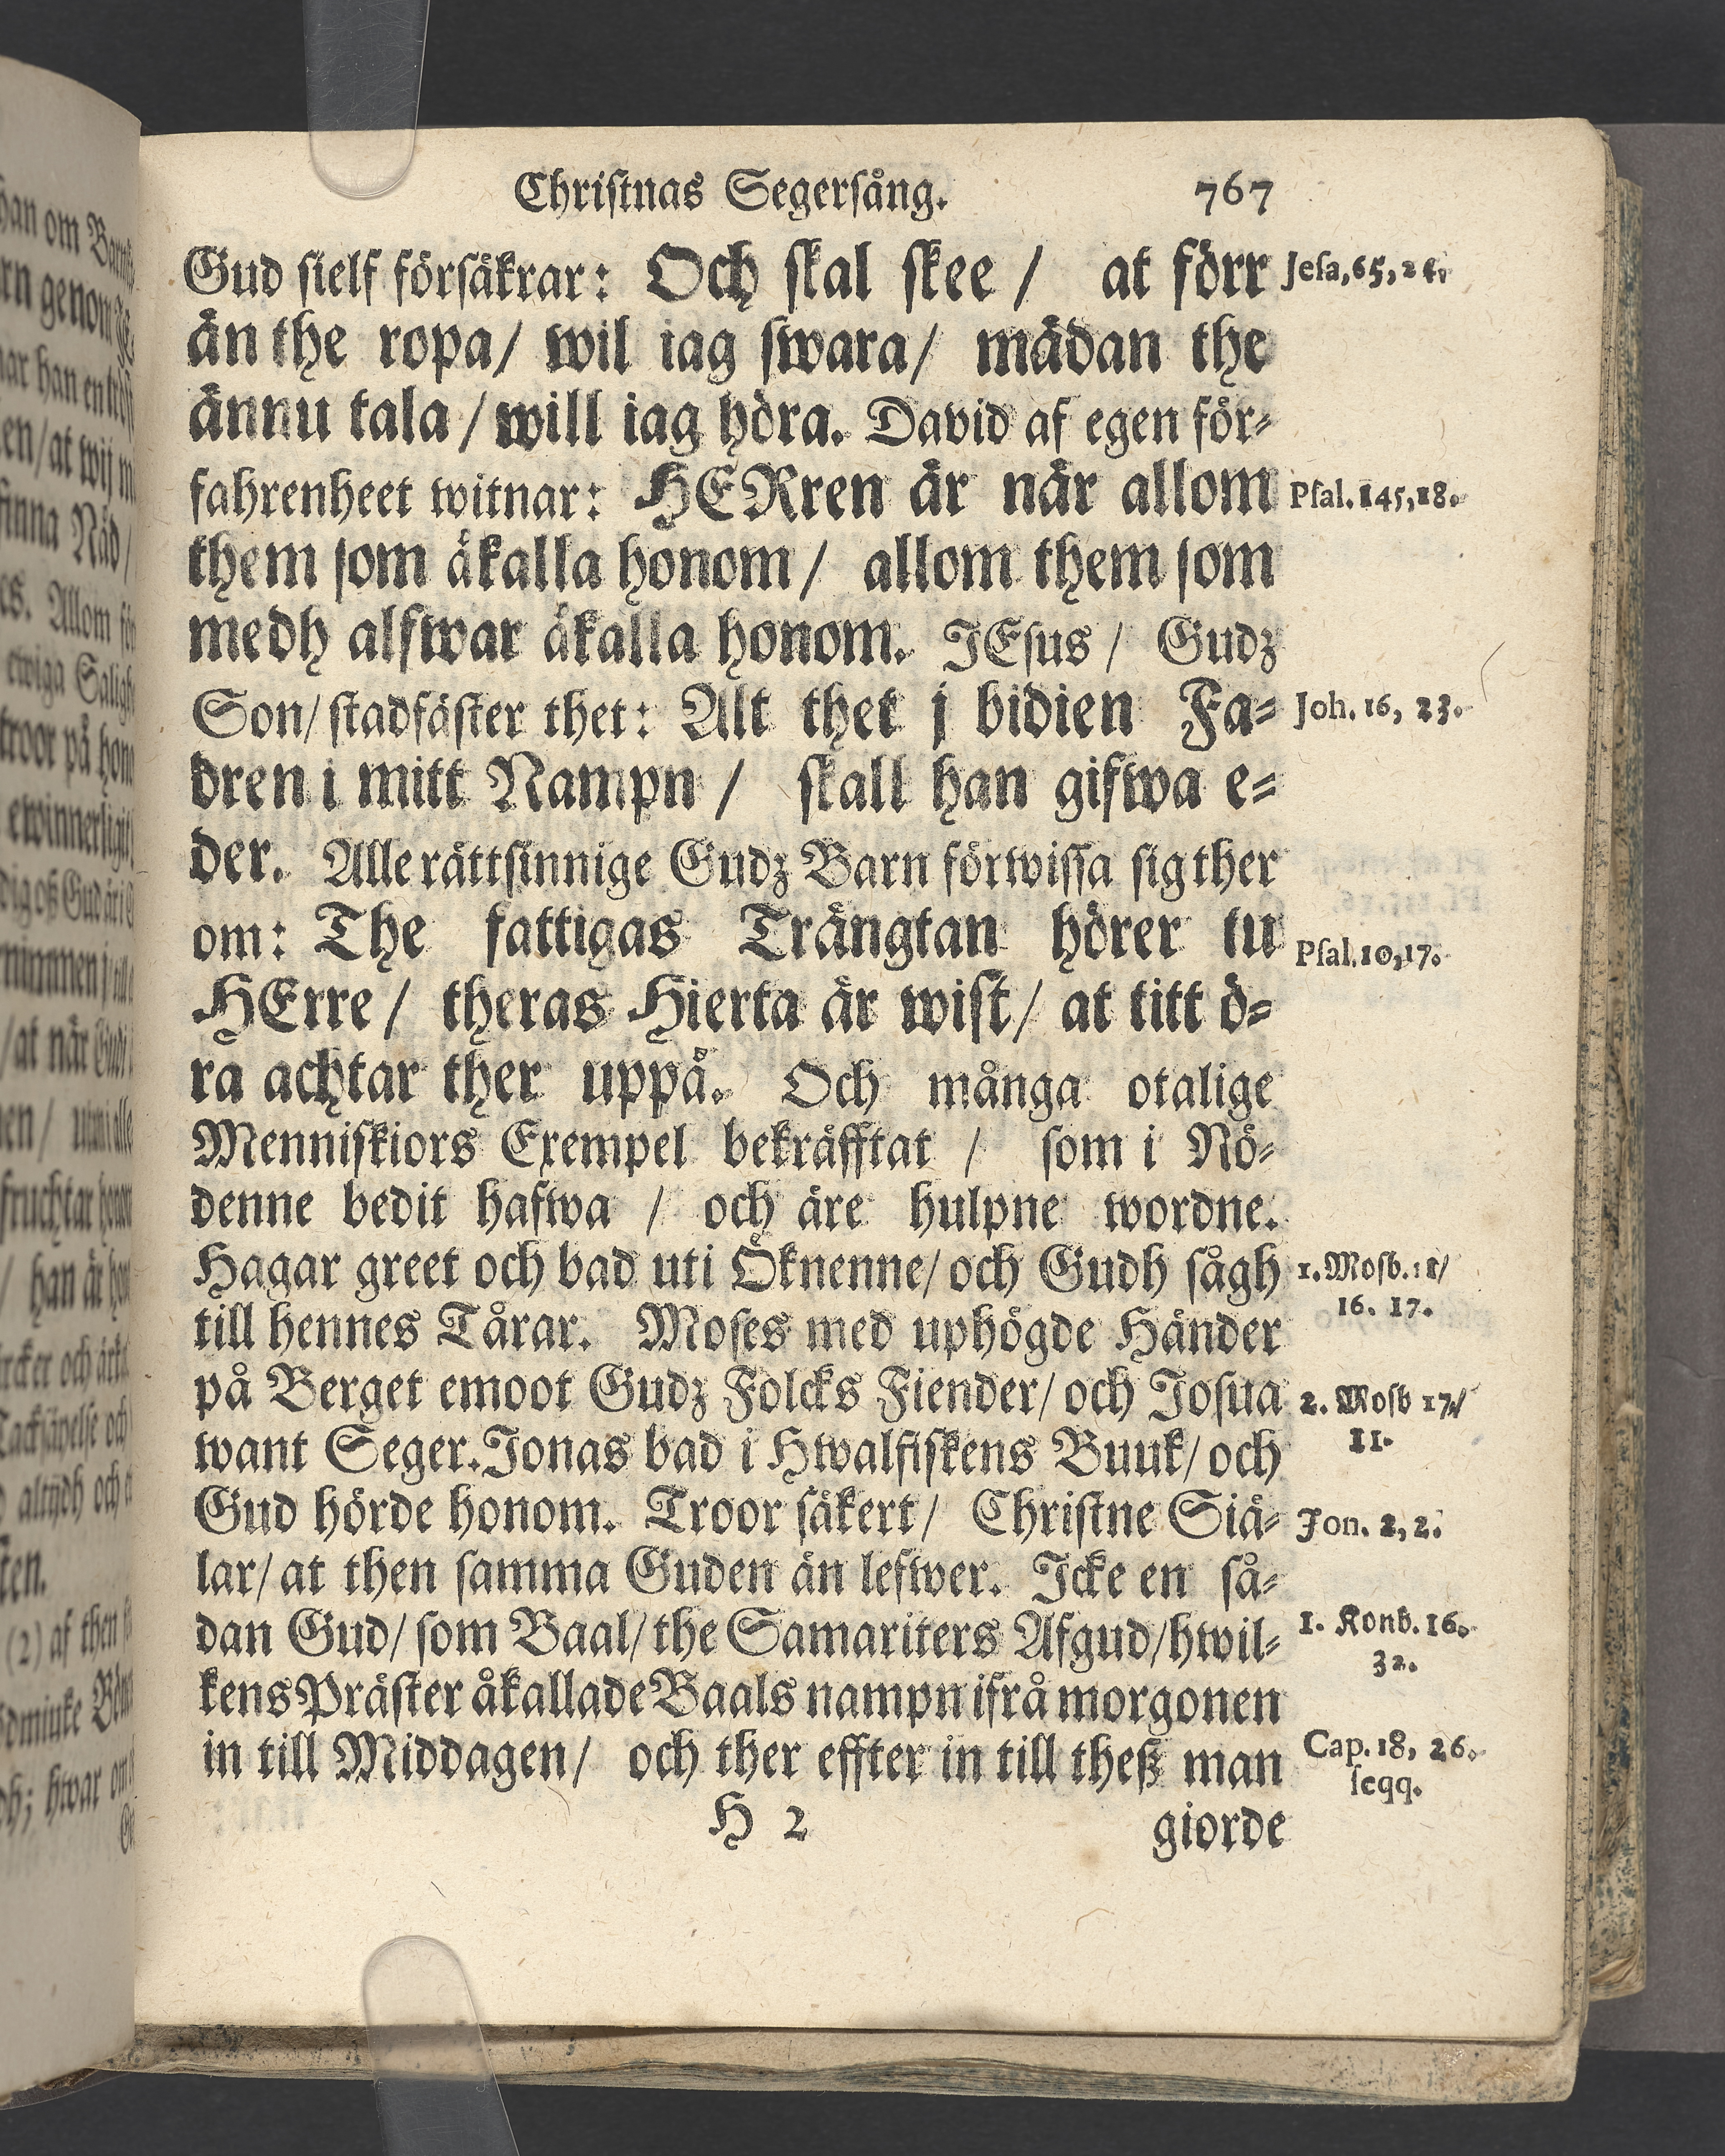 Christnas Segersång. 767
Gud sielf försäkrar: Och skal skee / at förr
Jesa, 65, 24.
än the ropa / wil iag swara / mädan the
ännu tala / will iag höra. David af egen för-
fahrenheet witnar: HERren är när allom
Psal. 145, 18.
them som åkalla honom / allom them som
medh alfwar åkalla honom. JEsus / Gudz
Son / stadfäster thet: Alt thet j bidien Fa-
Joh. 16, 23.
dren i mitt Nampn / skall han gifwa e-
der. Alle rättsinnige Gudz Barn förwissa sig ther
om: The fattigas Trängtan hörer tu
Psal. 10, 17.
HErre / theras Hierta är wist / at titt ö-
ra achtar ther uppå. Och många otalige
Menniskiors Exempel bekräfftat / som i Nö-
denne bedit hafwa / och äre hulpne wordne.
Hagar greet och bad uti Öknenne / och Gudh sågh
1. Mosb. 21 /
16. 17.
till hennes Tårar. Moses med uphögde Händer
på Berget emoot Gudz Folcks Fiender / och Josua
2. Mosb 17 /
11.
want Seger. Jonas bad i Hwalfiskens Buuk / och
Gud hörde honom. Troor säkert / Christne Siä-
Jon. 2, 2.
lar / at then samma Guden än lefwer. Icke en så-
dan Gud / som Baal / the Samariters Afgud / hwil-
1. Konb. 16.
32.
kens Präster åkallade Baals nampn ifrå morgonen
in till Middagen / och ther effter in till theß man
Cap. 18, 26.
seqq.
H 2 giorde